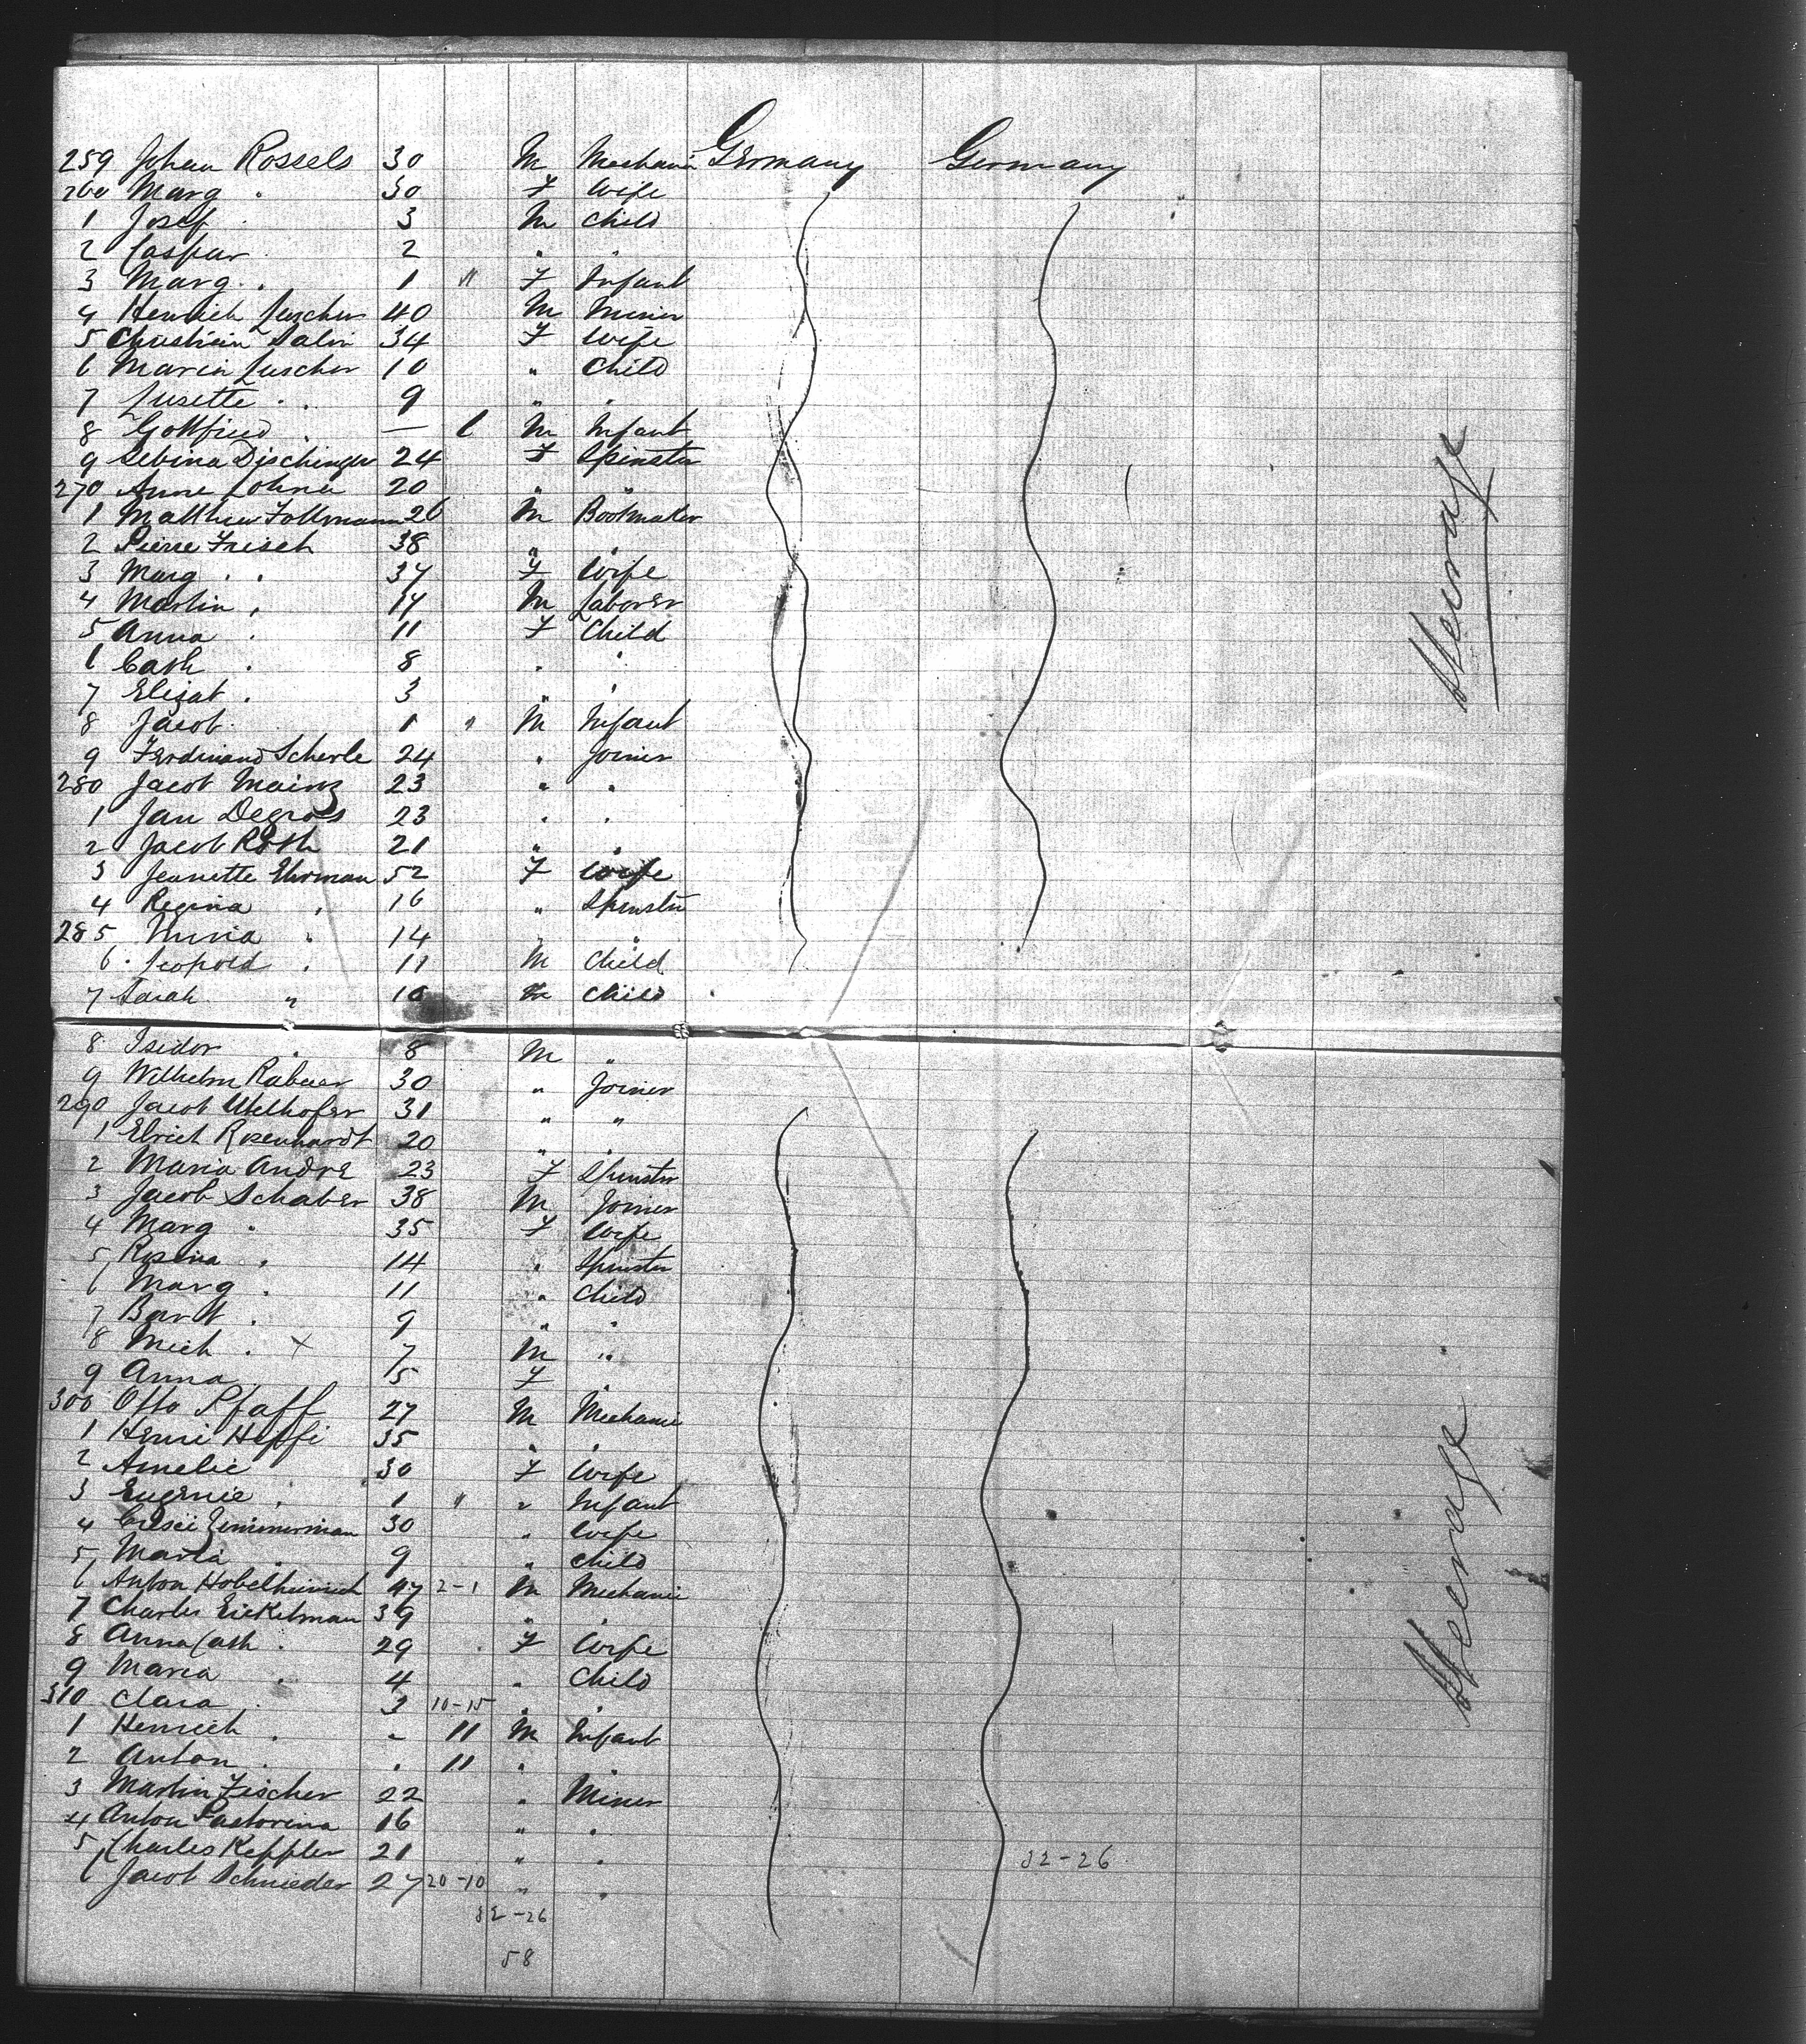 259 Johan Rossels 30 M Mechanic Germany Germany
260 Marg " 30 F Wife
1 Josef 3 M Child
2 Caspar 2 " "
3 Marg " 1 " F Infant
4 Henrich Luscher 40 M Miner
5 Christian Salin 34 F Wife
6 Maria Luscher 10 " Child
7 Lusette " 9 " "
8 Gottfried " — 6 M Infant
9 24 F Spinster
270 Anne 20 " "
1 Matthew Follmann 26 M Bootmaker
2 Pierre Frisch 38 " "
3 Marg " 37 F Wife
4 Martin " 14 M Laborer
5 Anna " 11 F Child
6 Cath " 8 " "
7 Elizat " 3 " "
8 Jacob 1 " M Infant
9 Ferdinand Scherle 24 " Joiner
280 Jacob Mainz 23 " "
1 Jan Degros 23 " "
2 Jacob Roth 21 " "
3 Jeanette Ehrman 52 F Wife
4 Regina " 16 " Spinster
285 " 14 " "
6 Leopold " 11 M Child
7 Sarah " 10 Child
8 Isidor " 8 M "
9 Wilhelm 30 " Joiner
290 Jacob 31 " "
1 Elrich Rosenhardt 20 " "
2 Maria Andre 23 F Spinster
3 Jacob Schaber 38 M Joiner
4 Marg " 35 F Wife
5 Rosina " 14 " Spinster
6 Marg " 11 " Child
7 " 9 " "
8 Mich " x 7 M "
9 Anna 5 F "
300 Otto Pfaff 27 M Mechanic
1 Henri Heffi 35 " "
2 Amelie 30 F Wife
3 Eugenie " 1 " " Infant
4 Zimmerman 30 " Wife
5 Maria " 9 " Child
6 Anton 47 2-1 M Mechanic
7 Charles Eickelman 39 " "
8 Anna Cath " 29 F Wife
9 Maria " 4 " Child
310 Clara " 3 10-15 " "
1 Henrich " " 11 M Infant
2 Anton " " 11 "
3 Martin Fischer 22 " Miner
4 Anton Pastorina 16 " "
5 Charles Keppler 21 " " 32-26
6 Jacob Schnieder 27 20-10 " "
32-26
58
Steerage
Steerage